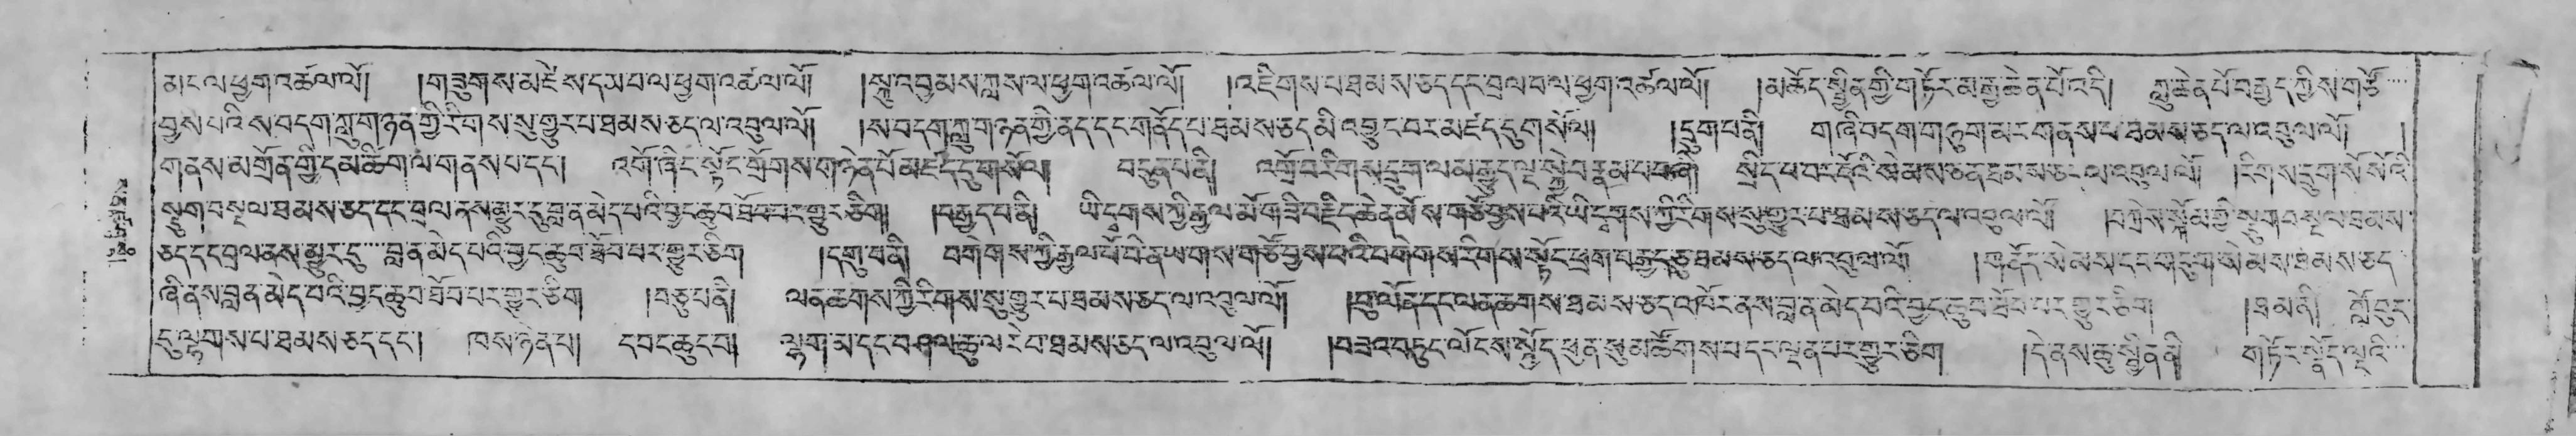 མང་ལ་ཕྱག་འཚལ་ལོ། །གཟུགས་མཛེས་དམ་པ་ལ་ཕྱག་འཚལ་ལོ། །སྐུ་འབྱམས་ཀླས་ལ་ཕྱག་འཚལ་ལོ། །འཇིགས་པ་ཐམས་ཅད་དང་བྲལ་བ་ལ་ཕྱག་འཚལ་ལོ། །མཆོད་སྦྱིན་གྱི་གཏོར་མ་རྒྱ་ཆེན་པོ་འདི། ཀླུ་ཆེན་པོ་བརྒྱད་ཀྱིས་གཙོ་
བྱས་པའི་ས་བདག་ཀླུ་གཉན་གྱི་རིགས་སུ་གྱུར་པ་ཐམས་ཅད་ལ་འབུལ་ལོ། །ས་བདག་ཀླུ་གཉན་གྱི་ནད་དང་གནོད་པ་ཐམས་ཅད་མི་འབྱུང་བར་མཛད་དུ་གསོལ། །དྲུག་པ་ནི། གཞི་བདག་གཉུག་མར་གནས་པ་ཐམས་ཅད་ལ་འབུལ་ལོ། །
གནས་མགྲོན་གྱི་དམ་ཚིག་ལ་གནས་པ་དང༌། འགོ་ཞིང་སྟོང་གྲོགས་གཉེན་པོ་མཛད་དུ་གསོལ། བདུན་པ་ནི། འགྲོ་བ་རིགས་དྲུག་ལམ་རྒྱུད་ལྔ་སྐྱེ་བ་རྣམ་པ་བཞི། སྲིད་པ་བར་དོའི་སེམས་ཅན་ཐམས་ཅད་ལ་འབུལ་ལོ། །རིགས་དྲུག་སོ་སོའི་
སྡུག་བསྔལ་ཐམས་ཅད་དང་བྲལ་ནས་མྱུར་དུ་བླ་ན་མེད་པའི་བྱང་ཆུབ་ཐོབ་པར་གྱུར་ཅིག །བརྒྱད་པ་ནི། ཡི་དྭགས་ཀྱི་རྒྱལ་མོ་གཟི་བརྗིད་ཆེན་མོས་གཙོ་བྱས་པའི་ཡི་དྭགས་ཀྱི་རིགས་སུ་གྱུར་པ་ཐམས་ཅད་ལ་འབུལ་ལོ། །བཀྲེས་སྐོམ་གྱི་སྡུག་བསྔལ་ཐམས་
ཅད་དང་བྲལ་ནས་མྱུར་དུ་བླ་ན་མེད་པའི་བྱང་ཆུབ་ཐོབ་པར་གྱུར་ཅིག །དགུ་པ་ནི། བགེགས་ཀྱི་རྒྱལ་པོ་བི་ན་ཡ་གས་གཙོ་བྱས་པའི་བགེགས་རིགས་སྟོང་ཕྲག་བརྒྱད་ཅུ་ཐམས་ཅད་ལ་འབུལ་ལོ། །གནོད་སེམས་དང་གདུག་སེམས་ཐམས་ཅད་
ཞི་ནས་བླ་ན་མེད་པའི་བྱང་ཆུབ་ཐོབ་པར་གྱུར་ཅིག །བཅུ་པ་ནི། ལན་ཆགས་ཀྱི་རིགས་སུ་གྱུར་པ་ཐམས་ཅད་ལ་འབུལ་ལོ། །བུ་ལོན་དང་ལན་ཆགས་ཐམས་ཅད་འཁོར་ནས་བླ་ན་མེད་པའི་བྱང་ཆུབ་ཐོབ་པར་གྱུར་ཅིག །ཐ་མ་ནི། གློ་བུར་
དུ་ལྷགས་པ་ཐམས་ཅད་དང༌། ཁས་ཉེན་པ། དབང་ཆུང་བ། ལྷག་མ་དང་བཤལ་ཆུ་ལ་རེ་བ་ཐམས་ཅད་ལ་འབུལ་ལོ། །བཟའ་བཏུང་ལོངས་སྤྱོད་ཕུན་སུམ་ཚོགས་པ་དང་ལྡན་པར་གྱུར་ཅིག །དེ་ནས་ཆུ་སྦྱིན་ནི། གཏོར་སྣོད་ལྔའི་